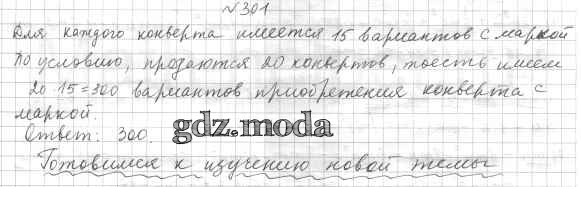 №301
Для каждого конверта имеется 15 вариантов с маркой
По условию, продаются 20 конвертов, тоесть имеем
20·15=300 вариантов приобретения конверта с
маркой.
Ответ: 300.
gdz.moda
Готовимся к изучению новой темы